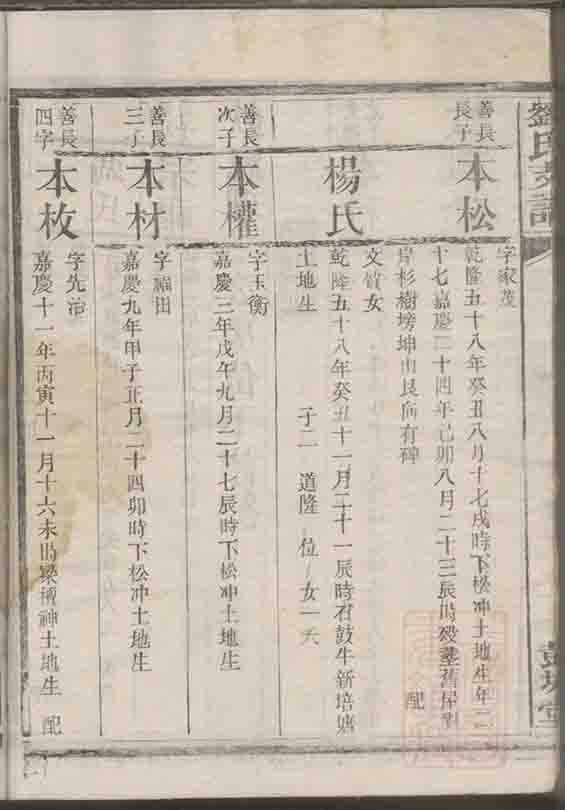 劉氏支譜
善長長子
本松
字家茂
乾隆五十八年癸丑八月十七戌時下松冲土地生年二
十七嘉慶二十四年己卯八月二十三辰時歿塟舊屋對
岸杉樹塝坤山艮向有碑 配
楊氏
文質女
乾隆五十八年癸丑十一月二十一辰時石鼓牛新培塘
土地生 子二 道隆 位 女一 夭
善長次子
本權
字玉衡
嘉慶三年戊午九月二十七辰時下松冲土地生
善長三子
本材
字福田
嘉慶九年甲子正月二十四卯時下松冲土地生
善長四字
本枚
字先治
嘉慶十一年丙寅十一月十六未時梁檀神土地生 配